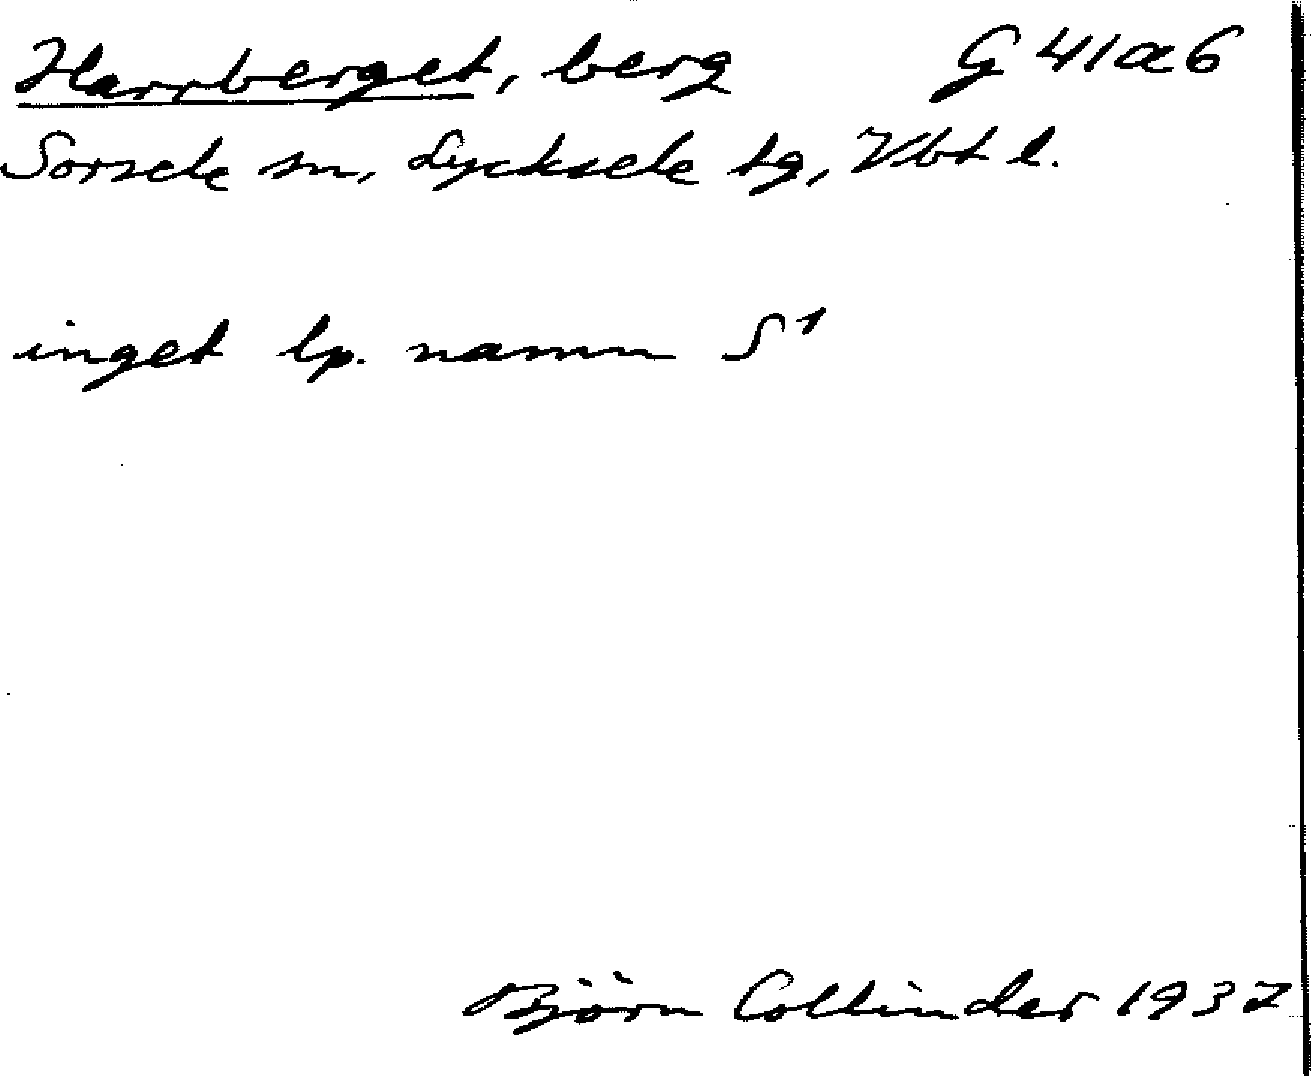 Harrberget, berg G 41 a 6
Sorsele sn, Lycksele tg, Vbt l.
inget lp. namn S¹
Björn Collinder 1937